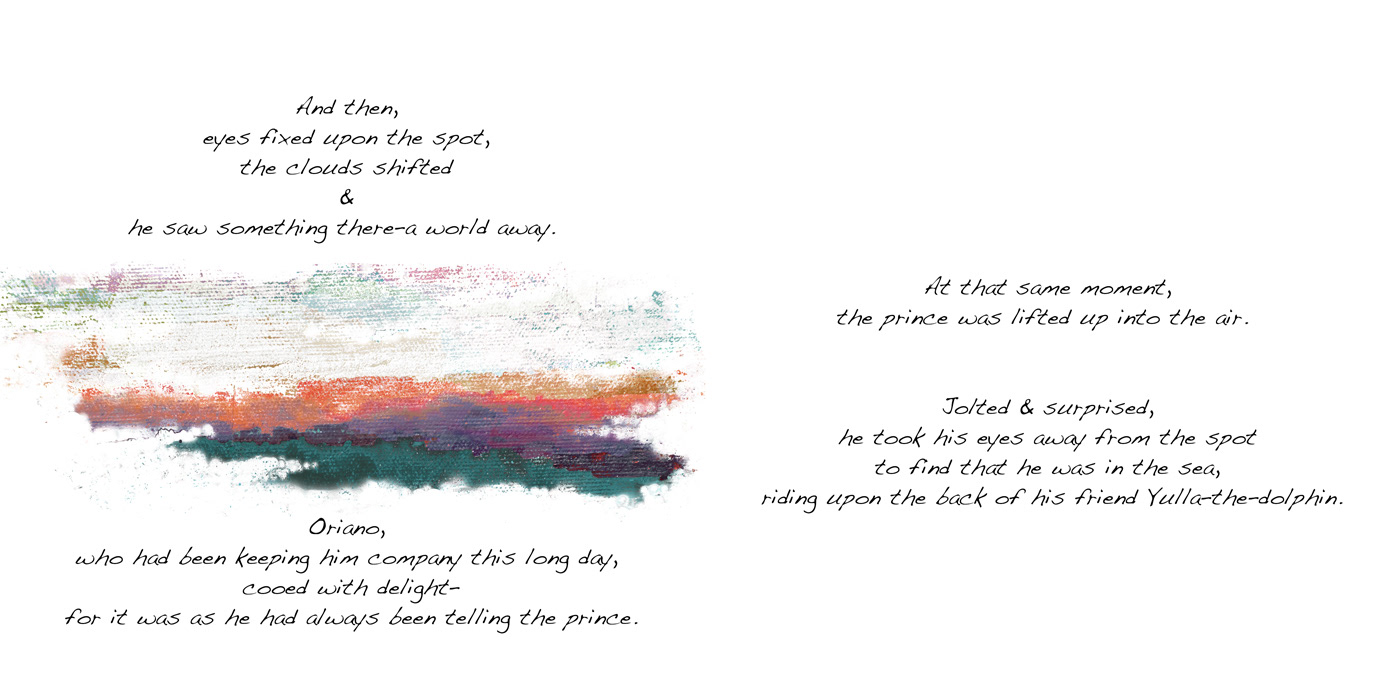 And then,
eyes fixed upon the spot,
the clouds shifted
&
he saw something there-a world away.
Oriano,
who had been keeping him company this long day,
cooed with delight-
for it was as he had always been telling the prince.
At that same moment,
the prince was lifted up into the air.
Jolted & surprised,
he took his eyes away from the spot
to find that he was in the sea,
riding upon the back of his friend Yulla-the-dolphin.